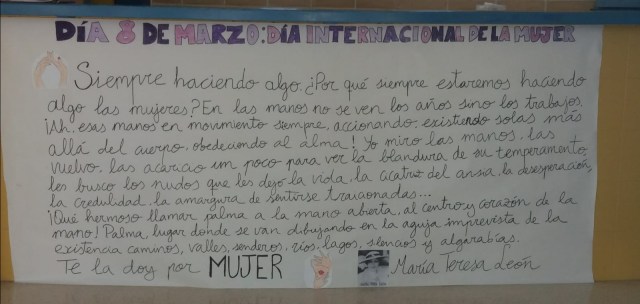 DÍA 8 DE MARZO: DÍA INTERNACIONAL DE LA MUJER
Siempre haciendo algo. ¿Por qué siempre estaremos haciendo
algo las mujeres? En las manos no se ven los años sino los trabajos.
¡Ah, esas manos en movimiento siempre, accionando, existiendo solas más
allá del cuerpo, obedeciendo al alma! Yo miro las manos, las
vuelvo, las acaricio un poco para ver la blandura de su temperamento,
les busco los nudos que les dejó la vida, la cicatriz del ansia, la desesperación,
la credulidad, la amargura de sentirse traicionadas...
¡Qué hermoso llamar palma a la mano abierta, al centro y corazón de la
mano! Palma, lugar donde se van dibujando en la aguja imprevista de la
existencia caminos, valles, senderos, ríos, lagos, silencios y algarabías.
Te la doy por MUJER María Teresa León